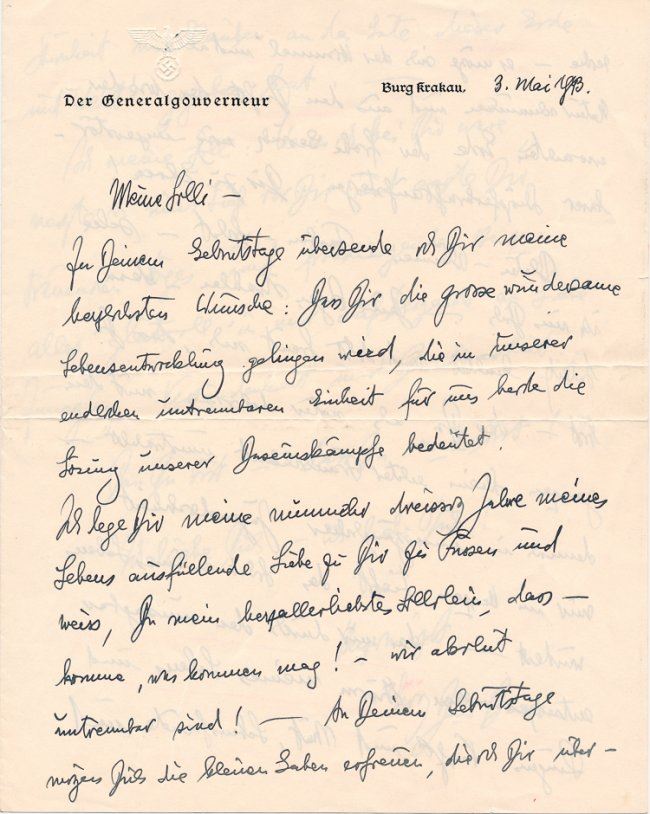 Der Generalgouverneur
Burg Krakau, 3. Mai 1943.
Meine Lilli —
Zu Deinem Geburtstage übersende ich Dir meine
herzlichsten Wünsche: Dass Dir die grosse wundersame
Lebensentwicklung gelingen wird, die in unserer
endlichen untrennbaren Einheit für uns beide die
Lösung unserer Daseinskämpfe bedeutet.
Ich lege Dir meine nunmehr dreissig Jahre meines
Lebens ausfüllende Liebe zu Dir zu Füssen und
weiss, Du mein herzallerliebstes Lillilein, dass —
komme, was kommen mag! — wir absolut
untrennbar sind! — An Deinem Geburtstage
mögen Dich die kleinen Gaben erfreuen, die ich Dir über-